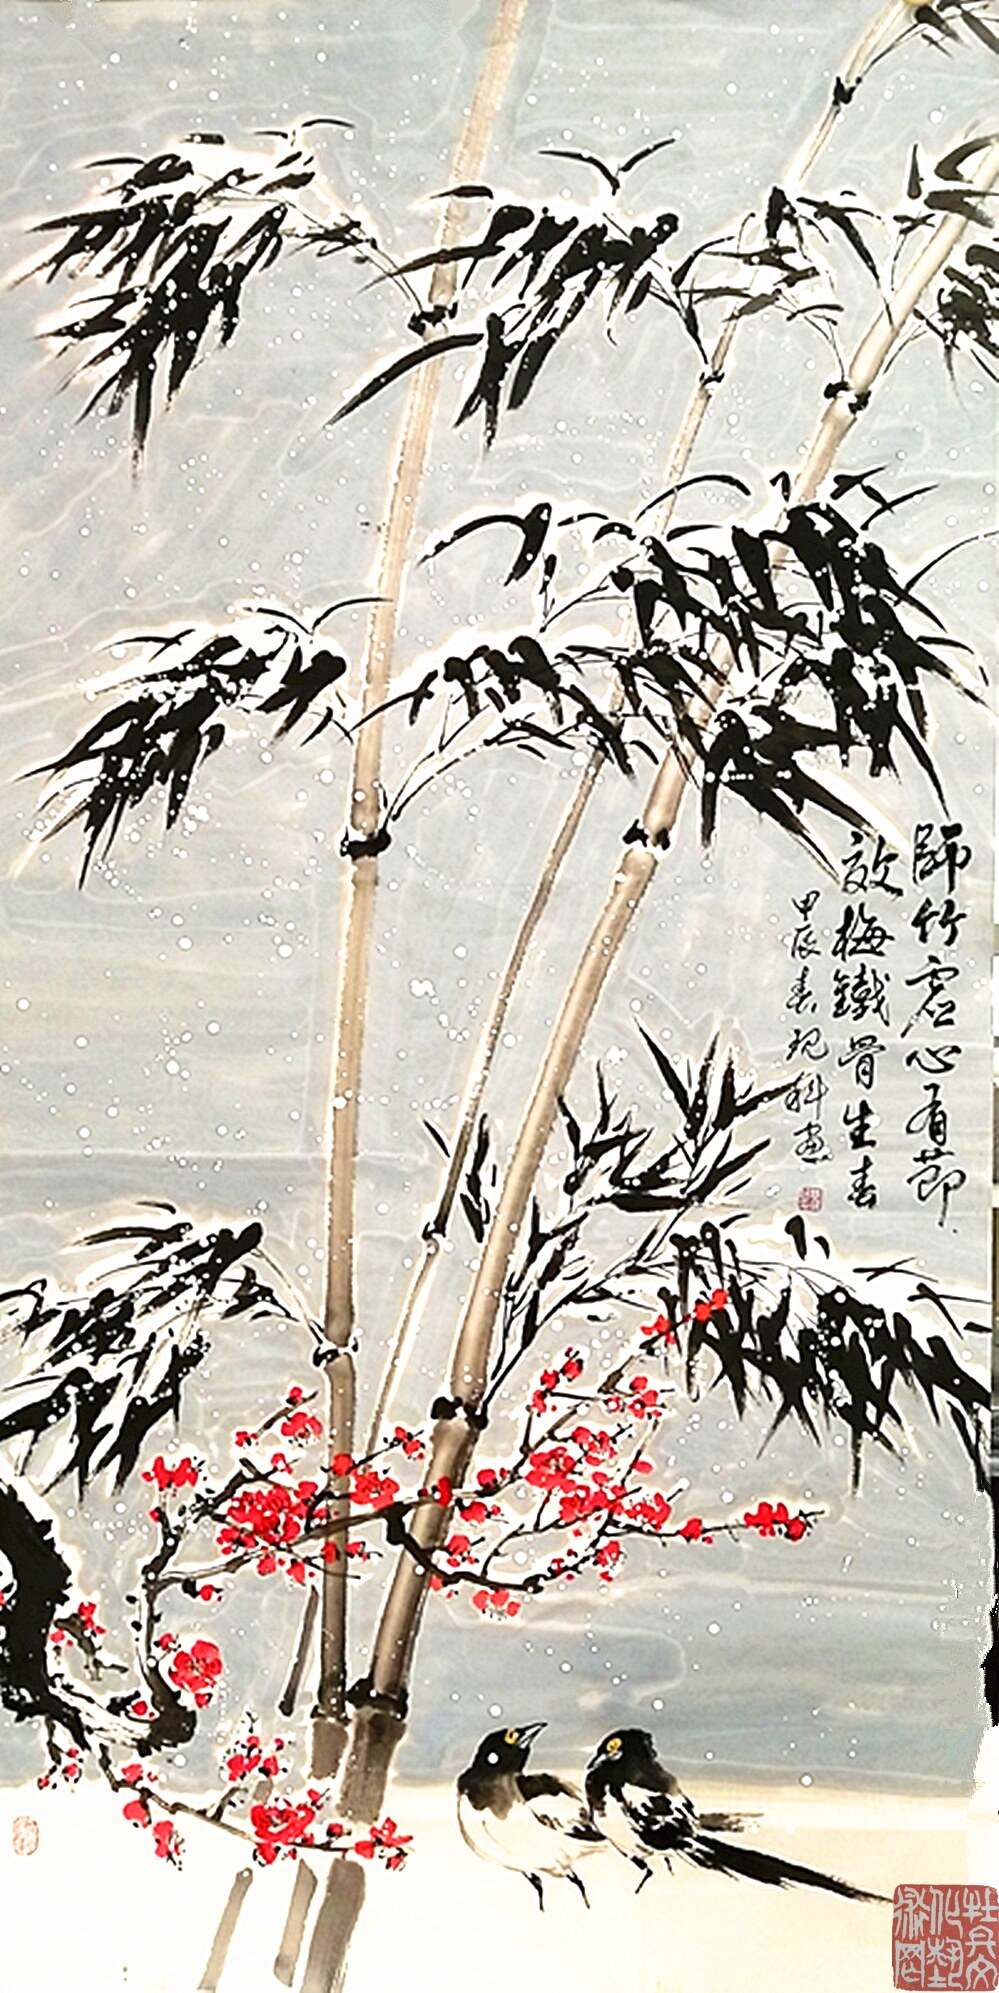 師竹虛心有節
效梅鐵骨生春
甲辰春現科画